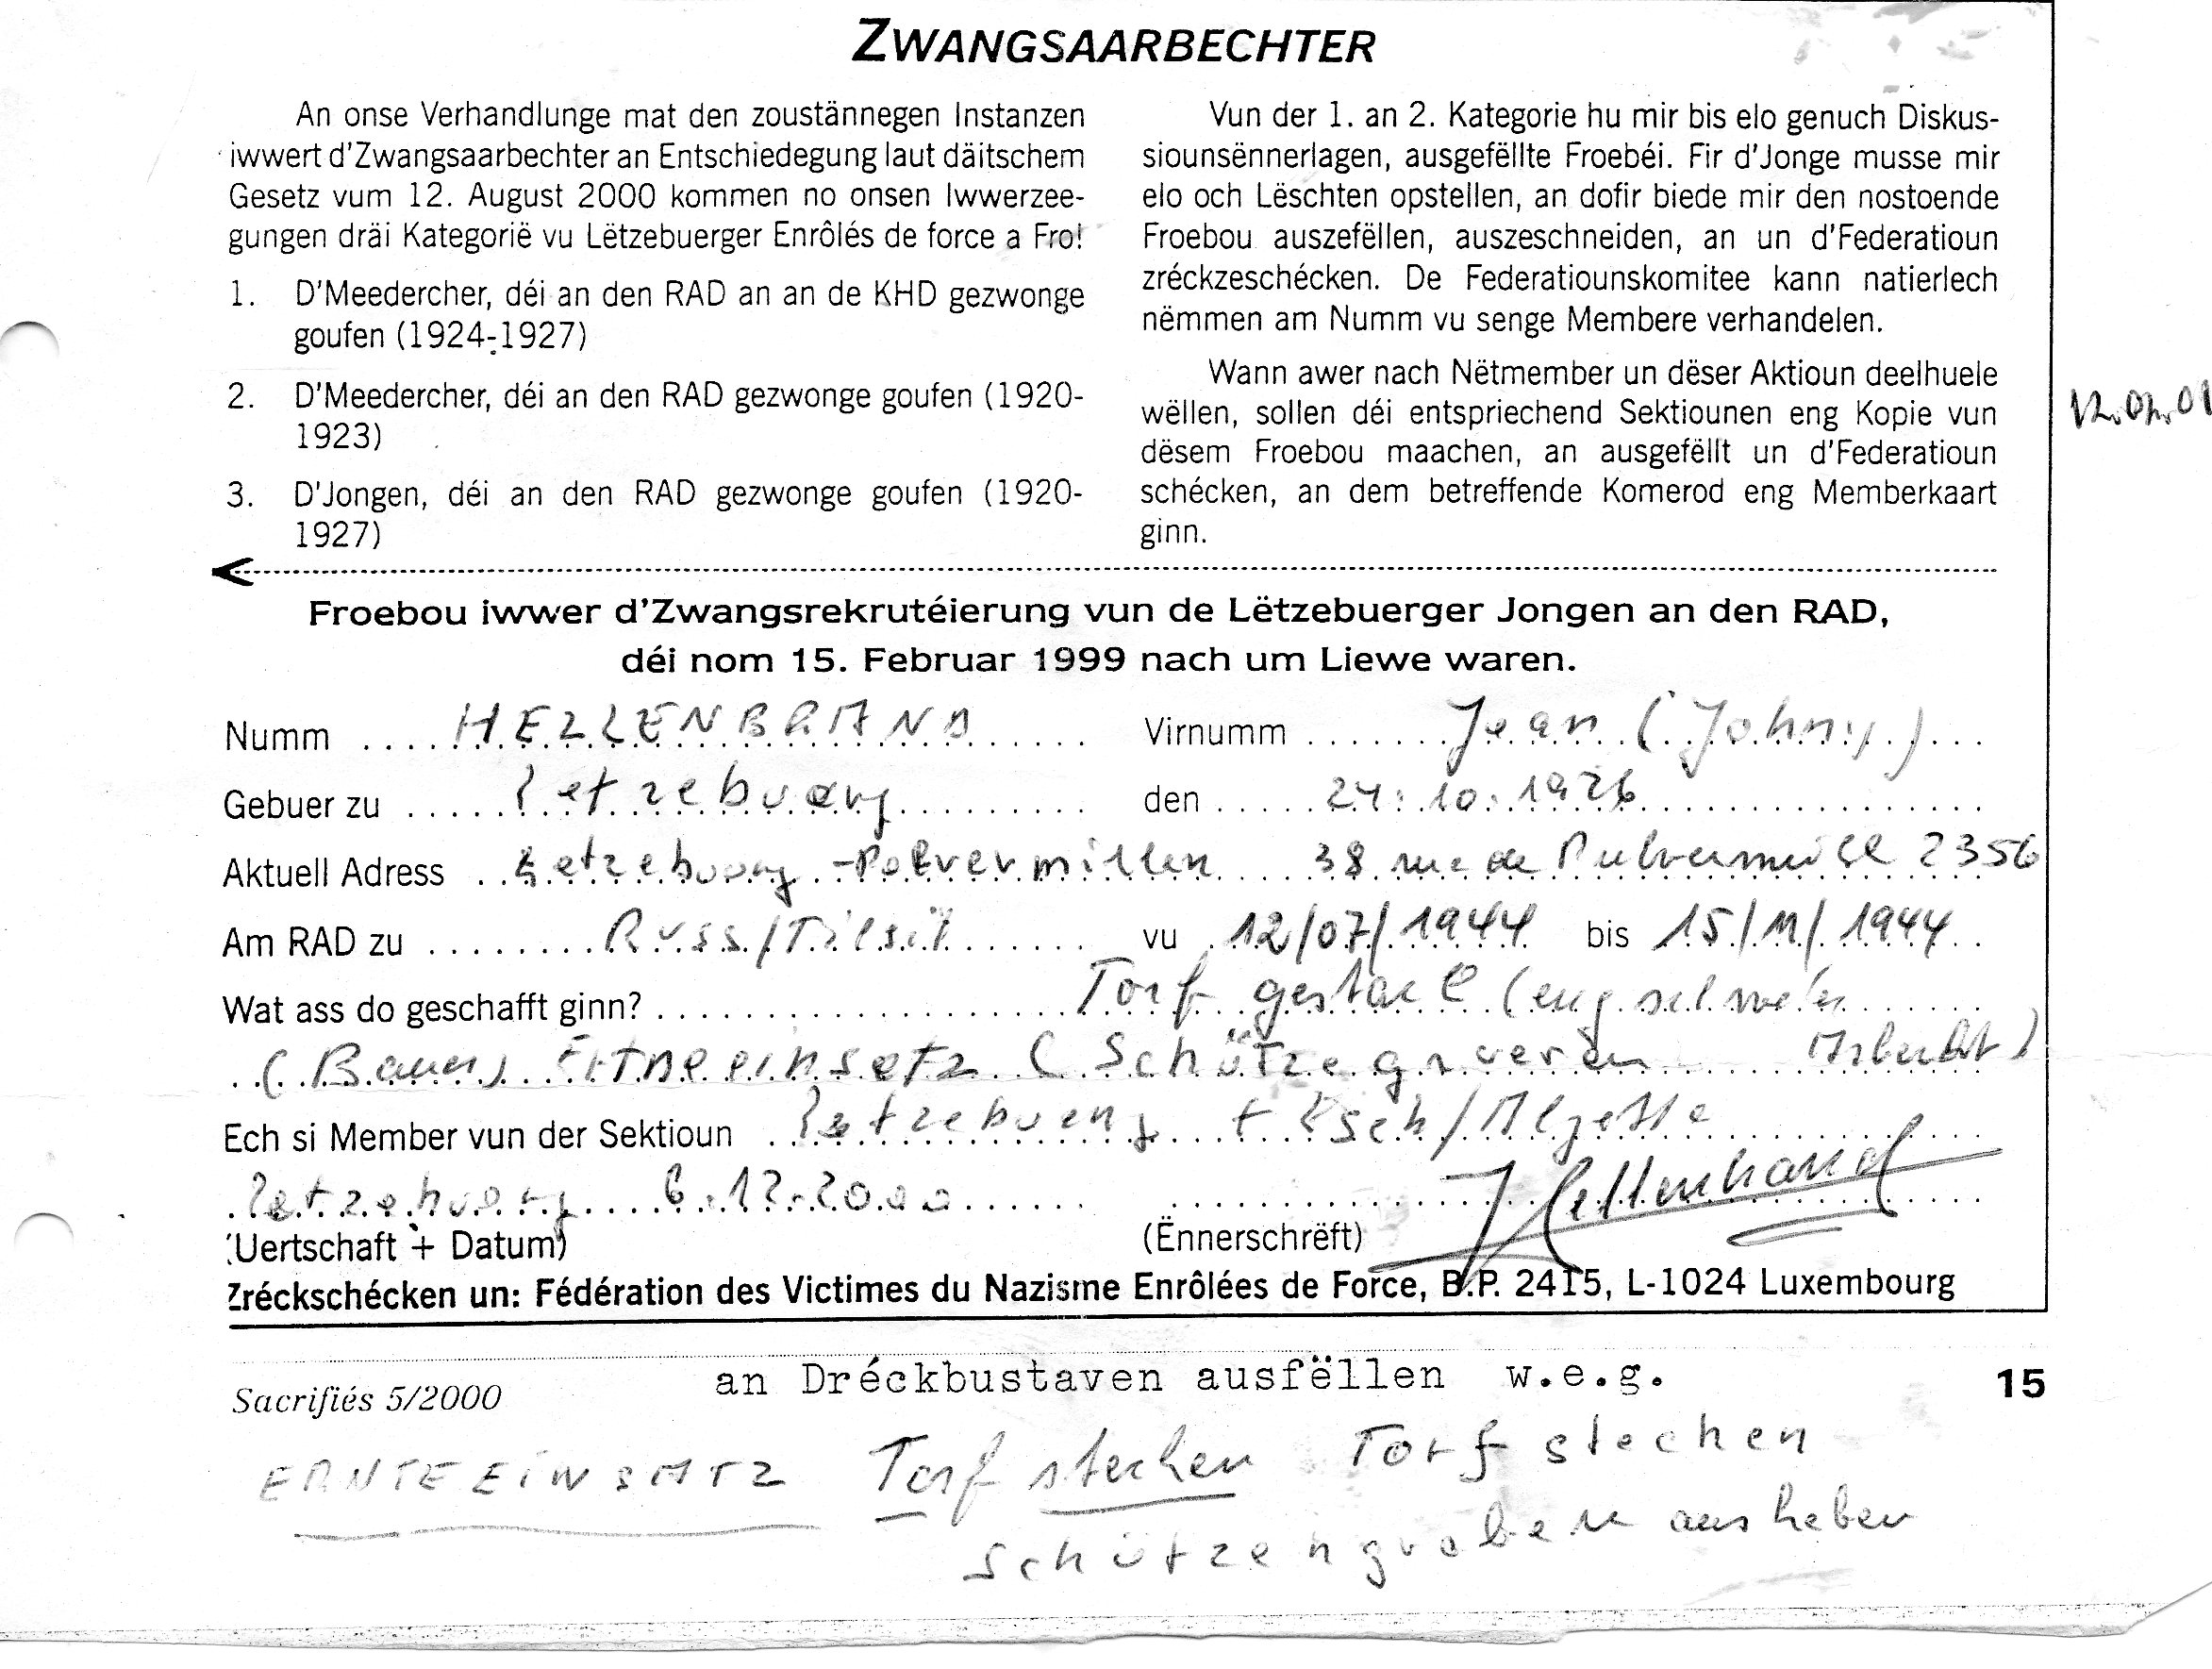 ZWANGSAARBECHTER
An onse Verhandlunge mat den zoustännegen Instanzen
iwwert d'Zwangsaarbechter an Entschiedegung laut däitschem
Gesetz vum 12. August 2000 kommen no onsen Iwwerzee-
gungen dräi Kategorië vu Lëtzebuerger Enrôlés de force a Fro!
1. D'Meedercher, déi an den RAD an an de KHD gezwonge
goufen (1924-1927)
2. D'Meedercher, déi an den RAD gezwonge goufen (1920-
1923)
3. D'Jongen, déi an den RAD gezwonge goufen (1920-
1927)
Vun der 1. an 2. Kategorie hu mir bis elo genuch Diskus-
siounsënnerlagen, ausgefëllte Froebéi. Fir d'Jonge musse mir
elo och Lëschten opstellen, an dofir biede mir den nostoende
Froebou auszefëllen, auszeschneiden, an un d'Federatioun
zréckzeschécken. De Federatiounskomitee kann natierlech
nëmmen am Numm vu senge Membere verhandelen.
Wann awer nach Nëtmember un dëser Aktioun deelhuele
wëllen, sollen déi entspriechend Sektiounen eng Kopie vun
dësem Froebou maachen, an ausgefëllt un d'Federatioun
schécken, an dem betreffende Komerod eng Memberkaart
ginn.
Froebou iwwer d'Zwangsrekrutéierung vun de Lëtzebuerger Jongen an den RAD,
déi nom 15. Februar 1999 nach um Liewe waren.
Numm HELLENBRAND Virnumm Jean (Johny)
Gebuer zu Letzebuerg den 24.10.1926
Aktuell Adress Letzebuerg - Polvermillen 38 rue de Pulvermühl 2356
Am RAD zu Russ/Tilsit vu 12/07/1944 bis 15/11/1944
Wat ass do geschafft ginn? Torf (eng
(Bauer) Schützegruewen Arbecht)
Ech si Member vun der Sektioun Letzebuerg + Esch/Alzette
Letzebuerg 6.12.2000 J Hellenbrand
(Uertschaft + Datum) (Ënnerschrëft)
Zréckschécken un: Fédération des Victimes du Nazisme Enrôlées de Force, B.P. 2415, L-1024 Luxembourg
Sacrifiés 5/2000 an Dréckbustaven ausfëllen w.e.g. 15
ERNTEEINSATZ Torf stechen Torf stechen
Schützengraben ausheben